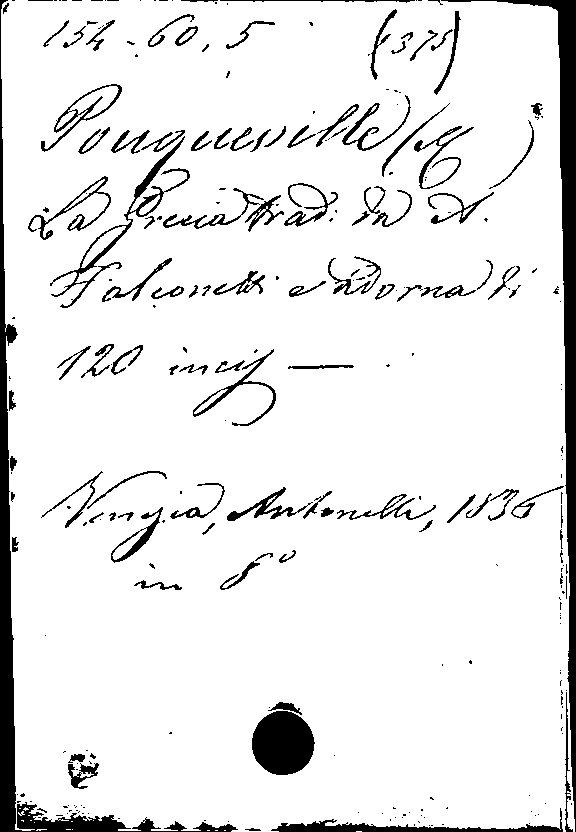 154-60.5 (375)
Pouqueville (M)
La Grecia trad: da A.
Falconetti e adorna di
120 incis —
Venezia, Antonelli, 1836
in 8°